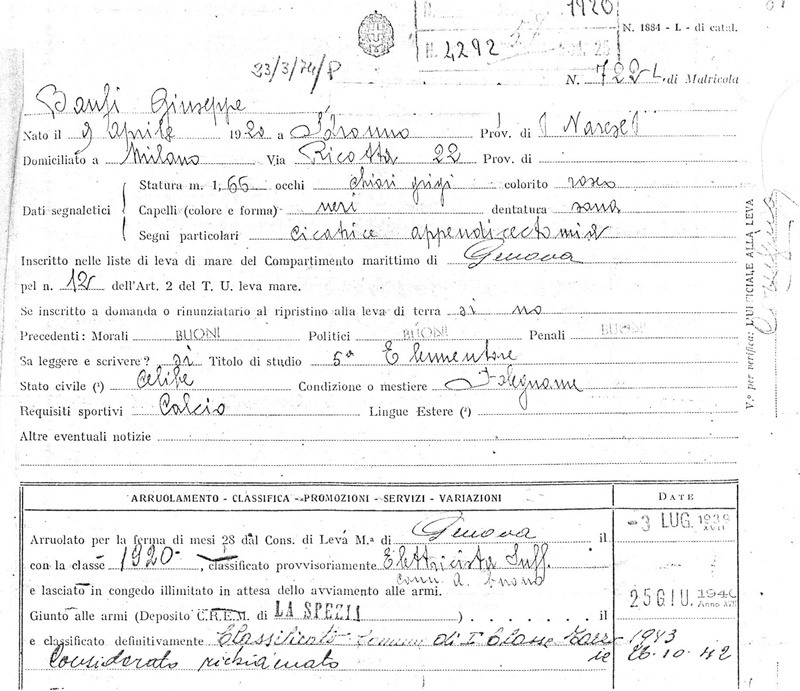 1920
N. 1884 - L - di catal.
N. 4292
23/3/74/P
N. 722 L. di Matricola
Banfi Giuseppe
Nato il 9 Aprile 1920 a Prov. di
Domiciliato a Milano Via Ricotta 22 Prov. di
Statura m. 1, 66 occhi chiari grigi colorito roseo
Dati segnaletici Capelli (colore e forma) neri dentatura sana
Segni particolari cicatrice appendicectomia
Inscritto nelle liste di leva di mare del Compartimento marittimo di Genova
pel n. 12 dell'Art. 2 del T. U. leva mare.
Se inscritto a domanda o rinunziatario al ripristino alla leva di terra si no
Precedenti: Morali BUONI Politici BUONI Penali BUONI
Sa leggere e scrivere? si Titolo di studio 5ª Elementare
Stato civile (¹) Celibe Condizione o mestiere Falegname
Requisiti sportivi Calcio Lingue Estere (²)
Altre eventuali notizie
V.º per verifica: L'UFFICIALE ALLA LEVA
ARRUOLAMENTO - CLASSIFICA - PROMOZIONI - SERVIZI - VARIAZIONI DATE
Arruolato per la ferma di mesi 28 dal Cons. di Leva M.ª di Genova il -3 LUG. 1939 XVII
con la classe 1920 , classificato provvisoriamente Elettricista
e lasciato in congedo illimitato in attesa dello avviamento alle armi.
Giunto alle armi (Deposito C.R.E.M. di LA SPEZIA ) il 25 GIU. 1940 Anno XVIII
e classificato definitivamente Classificato Comune di Iª Classe 1943
Considerato richiamato 26-10-42